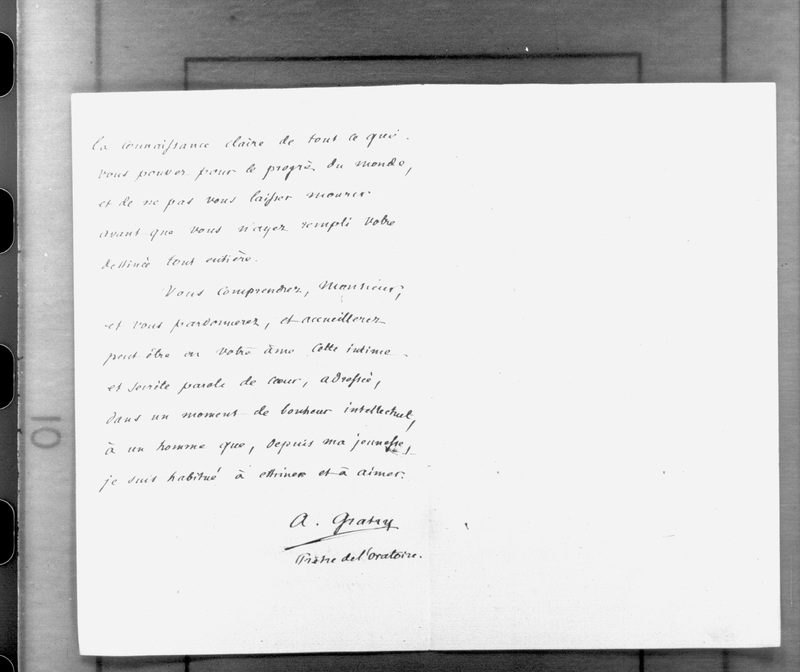 la connaissance claire de tout ce que
vous pouvez pour le progrès du monde,
et de ne pas vous laisser mourir
avant que vous n'ayez rempli votre
destinée tout entière.
Vous comprendrez, Monsieur,
et vous pardonnerez, et accueillerez
peut être en votre âme cette intime
et secrète parole de cœur, adressée,
dans un moment de bonheur intellectuel,
à un homme que, depuis ma jeunesse,
je suis habitué à estimer et à aimer.
A. Gratry
Prêtre de l'oratoire.
10